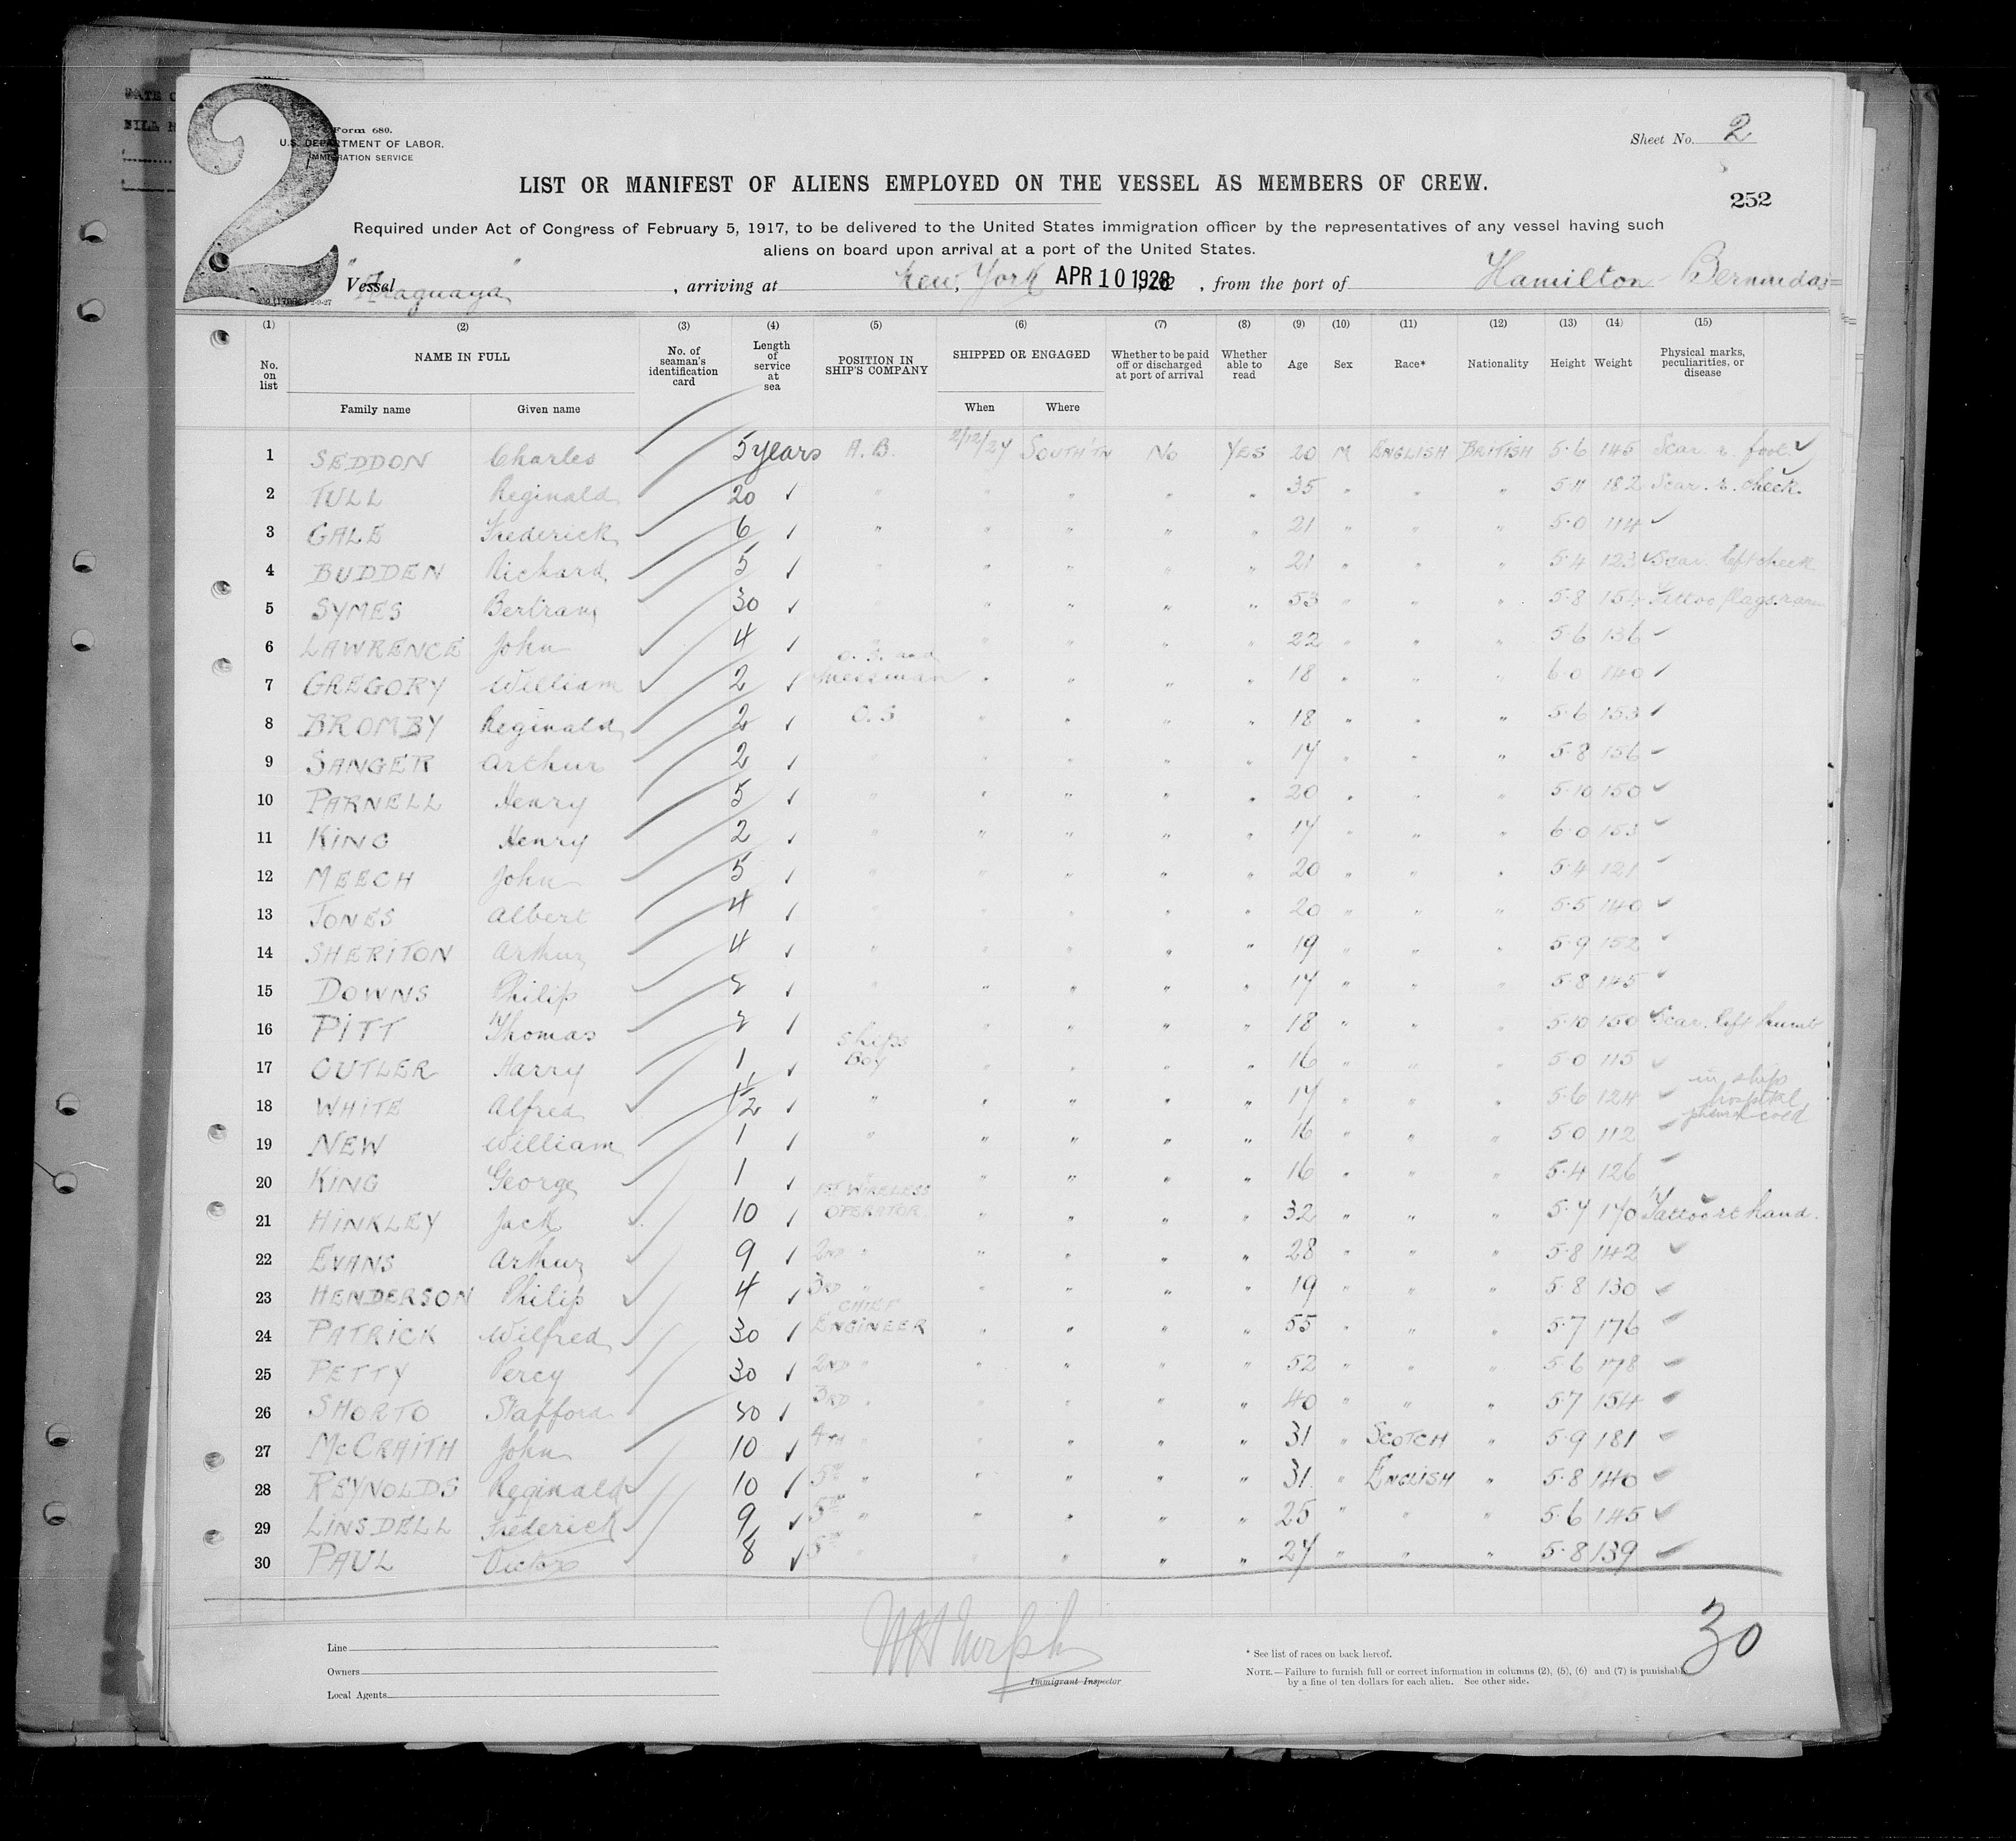 2
Form 680.
U.S. DEPARTMENT OF LABOR.
IMMIGRATION SERVICE
Sheet No. 2
LIST OR MANIFEST OF ALIENS EMPLOYED ON THE VESSEL AS MEMBERS OF CREW.
252
Required under Act of Congress of February 5, 1917, to be delivered to the United States immigration officer by the representatives of any vessel having such
aliens on board upon arrival at a port of the United States.
Vessel "Araguaya", arriving at New York APR 10 1928, from the port of Hamilton - Bermudas =
(1) (2) (3) (4) (5) (6) (7) (8) (9) (10) (11) (12) (13) (14) (15)
No. on list
NAME IN FULL
Family name
Given name
No. of seaman's identification card
Length of service at sea
POSITION IN SHIP'S COMPANY
SHIPPED OR ENGAGED
When
Where
Whether to be paid off or discharged at port of arrival
Whether able to read
Age
Sex
Race*
Nationality
Height
Weight
Physical marks, peculiarities, or disease
1 SEDDON Charles 5 years A.B. 2/12/27 SOUTH'TN No YES 20 M ENGLISH BRITISH 5·6 145 Scar. r. foot ✓
2 TULL Reginald 20 ✓ " " " " " 35 " " " 5·11 182 Scar. r. cheek. ✓
3 GALE Frederick 6 ✓ " " " " " 21 " " " 5·0 114 ✓
4 BUDDEN Richard 5 ✓ " " " " " 21 " " " 5·4 123 ✓ Scar. left cheek
5 SYMES Bertram 30 ✓ " " " " " 53 " " " 5·8 154 Tattoo flags. r arm
6 LAWRENCE John 4 ✓ " " " " " 22 " " " 5·6 136 ✓
7 GREGORY William 2 ✓ O.S. and Messman " " " " 18 " " " 6·0 140 ✓
8 BROMBY Reginald 2 ✓ O.S " " " " 18 " " " 5·6 153 ✓
9 SANGER Arthur 2 ✓ " " " " " 17 " " " 5·8 156 ✓
10 PARNELL Henry 5 ✓ " " " " " 20 " " " 5·10 150 ✓
11 KING Henry 2 ✓ " " " " " 17 " " " 6·0 153 ✓
12 MEECH John 5 ✓ " " " " " 20 " " " 5·4 121 ✓
13 JONES Albert 4 ✓ " " " " " 20 " " " 5·5 140 ✓
14 SHERITON Arthur 4 ✓ " " " " " 19 " " " 5·9 152 ✓
15 DOWNS Philip 2 ✓ " " " " " 17 " " " 5·8 145 ✓
16 PITT Thomas 2 ✓ " " " " 18 " " " 5·10 150 ✓ Scar. left thumb
17 CUTLER Harry 1 ✓ Ships Boy " " " " 16 " " " 5·0 115 ✓
18 WHITE Alfred 1½ ✓ " " " " " 17 " " " 5·6 124 ✓ in ship hospital
19 NEW William 1 ✓ " " " " " 16 " " " 5·0 112 ✓
20 KING George 1 ✓ " " " " " 16 " " " 5·4 126 ✓
21 HINKLEY Jack 10 ✓ 1ST WIRELESS OPERATOR " " " " 32 " " " 5·7 170 Tattoo rt hand. ✓
22 EVANS Arthur 9 ✓ 2ND " " " " " 28 " " " 5·8 142 ✓
23 HENDERSON Philip 4 ✓ 3RD " " " " " 19 " " " 5·8 130 ✓
24 PATRICK Wilfred 30 ✓ CHIEF ENGINEER " " " " 55 " " " 5·7 176 ✓
25 PETTY Percy 30 ✓ 2ND " " " " " 52 " " " 5·6 178 ✓
26 SHORTO Stafford 30 ✓ 3RD " " " " " 40 " " " 5·7 154 ✓
27 McCRAITH John 10 ✓ 4TH " " " " " 31 " SCOTCH " 5·9 181 ✓
28 REYNOLDS Reginald 10 ✓ 5TH " " " " " 31 " ENGLISH " 5·8 140 ✓
29 LINSDELL Frederick 9 ✓ 5TH " " " " " 25 " " " 5·6 145 ✓
30 PAUL Victor 8 ✓ 5TH " " " " " 27 " " " 5·8 139 ✓
30
Line
Owners
Local Agents
Immigrant Inspector
* See list of races on back hereof.
NOTE.—Failure to furnish full or correct information in columns (2), (5), (6) and (7) is punishable
by a fine of ten dollars for each alien. See other side.